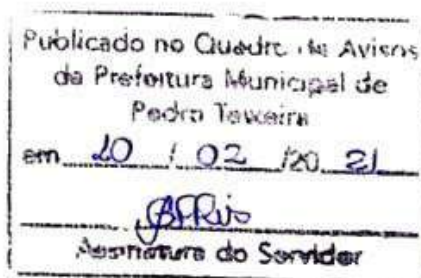 Publicado no Quadro de Avisos
da Prefeitura Municipal de
Pedro Teixeira
em 10 / 02 /20 21
Assinatura do Servidor